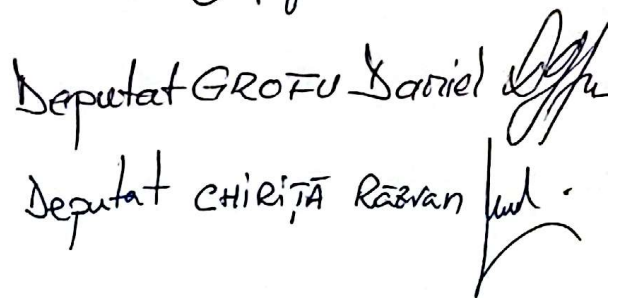 Deputat GROFU Daniel
Deputat CHIRIȚĂ Răzvan